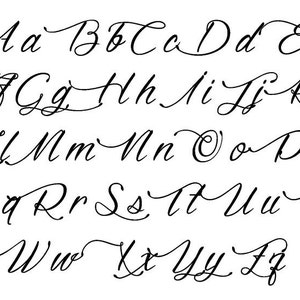 A a B b C c D d E
f G g H h I i J j K
M m N n O o P
q R r S s T t U u
W w X x Y y Z z